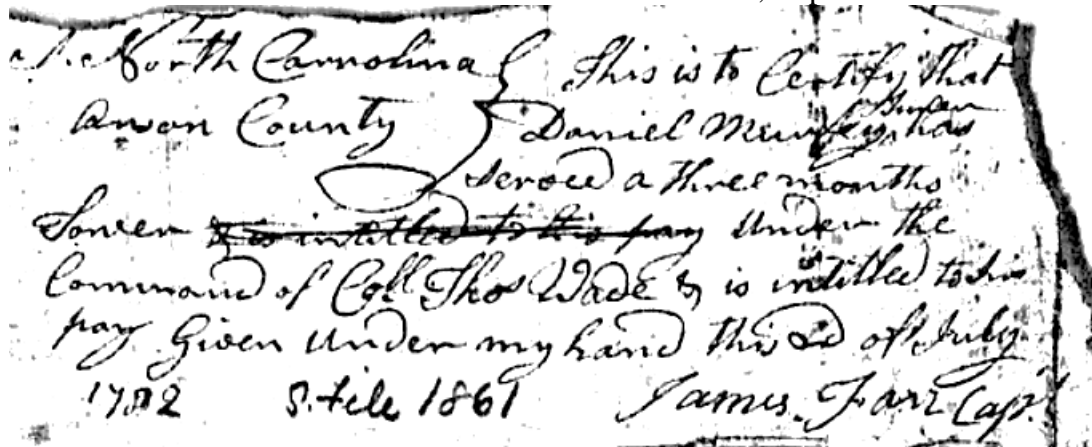 N. North Carrolina This is to Certify that
Anson County Daniel Murphey has
served a three months
Tower & is intitled to his pay Under the
Command of Coll Thos Wade & is intitled to his
pay Given Under my hand this 2d of July
1782 S. file 1861 James Farr Capt.